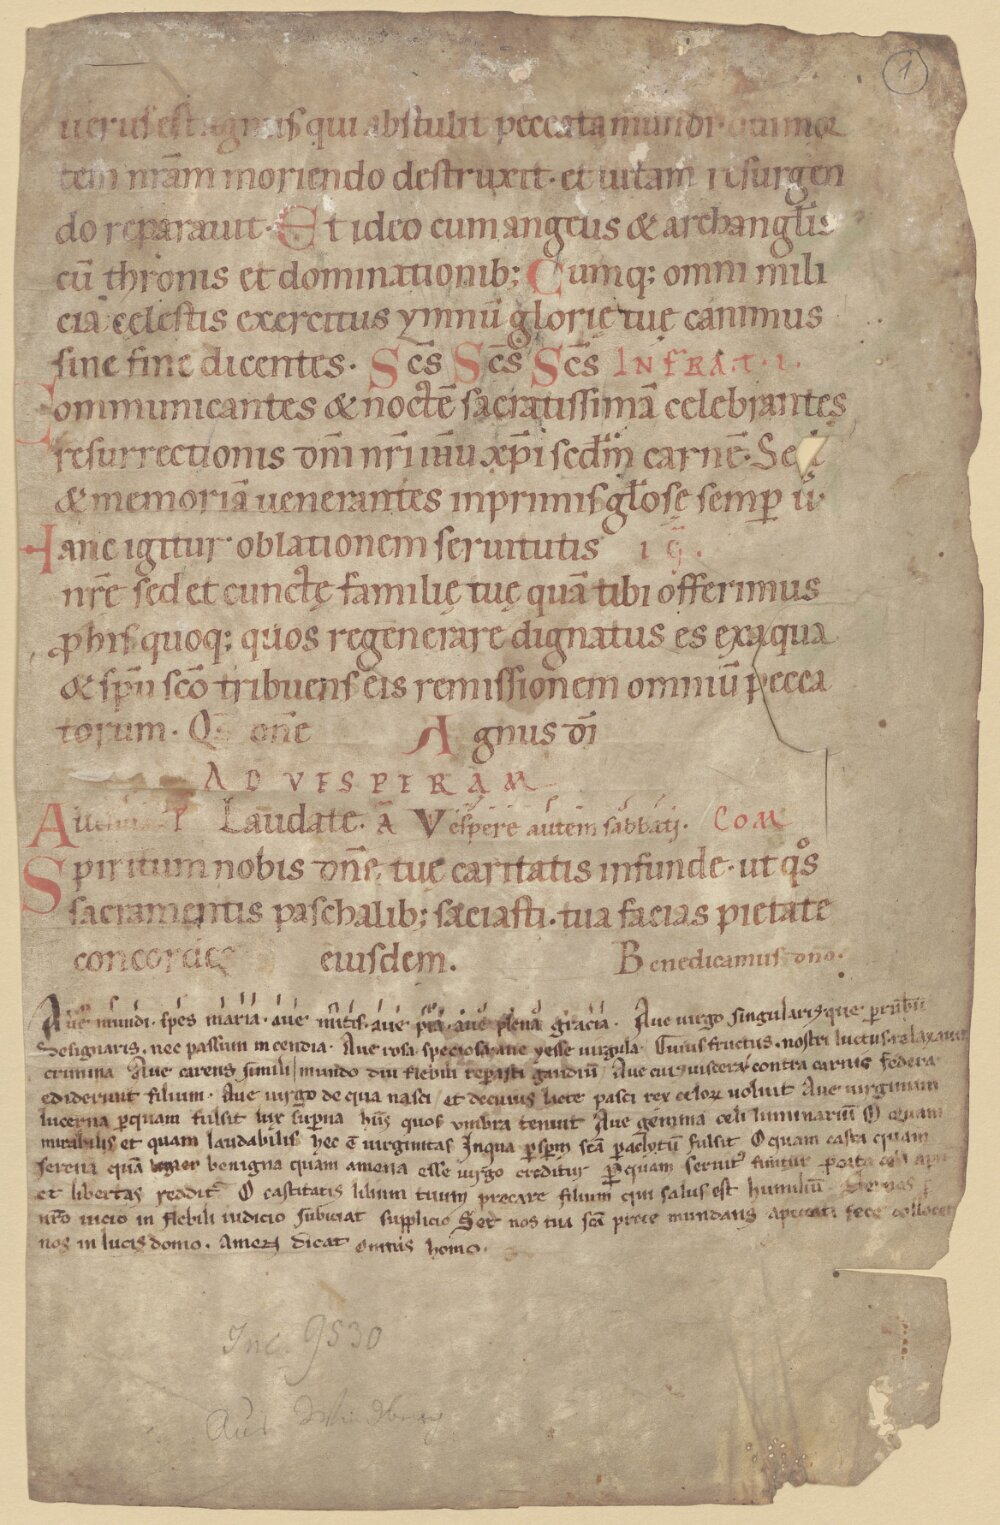 1
uerus est agnus qui abstulit peccata mundi. Qui mor
tem nr̄am moriendo destruxit. et uitam resurgen
do reparauit. Et ideo cum angelis & archangłis
cū thronis et dominationib; Cumq; omni mili
cia cęlestis exercitus ymnū glorię tuę canimus
sine fine dicentes. Sc̄s Sc̄s Sc̄s INFRA.T.I.
Communicantes & noctē sacratissimā celebrantes
resurrectionis dn̄i nr̄i ih̄u xp̄i scdm̄ carnē. Sed
& memoriā uenerantes inprimis głosę semp ū.
Hanc igitur oblationem seruitutis
nrē sed et cunctę familię tuę quā tibi offerimus
p his quoq; quos regenerare dignatus es ex aqua
& sp̄u sc̄o tribuens eis remissionem omniū pecca
torum. Qs on̄e Agnus dī
AD VESPERAM
Laudate. ā Vespere autem sabbati. COM
Spiritum nobis dn̄e tuę caritatis infunde. ut qo̊s
sacramentis paschalib; saciasti. tua facias pietate
concordes eiusdem. Benedicamus dn̄o.
Aue mundi. spes maria. aue mitis. aue pia. aue plena gracia. Aue uirgo singularis que p rubū
designaris. nec passum incendia. Aue rosa speciosa. aue yesse uirgula. Cuius fructus. nostri luctus. relaxauit
crimina Aue carens simili mundo diu flebili reparasti gaudiū Aue cuius uiscera contra carnis federa
ediderunt filium. Aue uirgo de qua nasci et de cuius lacte pasci rex celor uoluit Aue uirginum
lucerna p quam fulsit lux supna his quos umbra tenuit Aue gemma celi luminariū O quam
mirabilis et quam laudabilis hec ē uirginitas In qua p spm scā paclytū fulsit O quam casta quam
serena quā benigna quam amena esse uirgo creditur P quam seruit finitur porta celi
et libertas reddit O castitatis lilium tuum precare filium qui salus est humiliū
nr̄o uicio in flebili iudicio subiciat supplicio Set nos tua scā prece mundans a peccati fece collocet
nos in lucis domo. Amen dicat omnis homo.
Inc. 9530
Aus